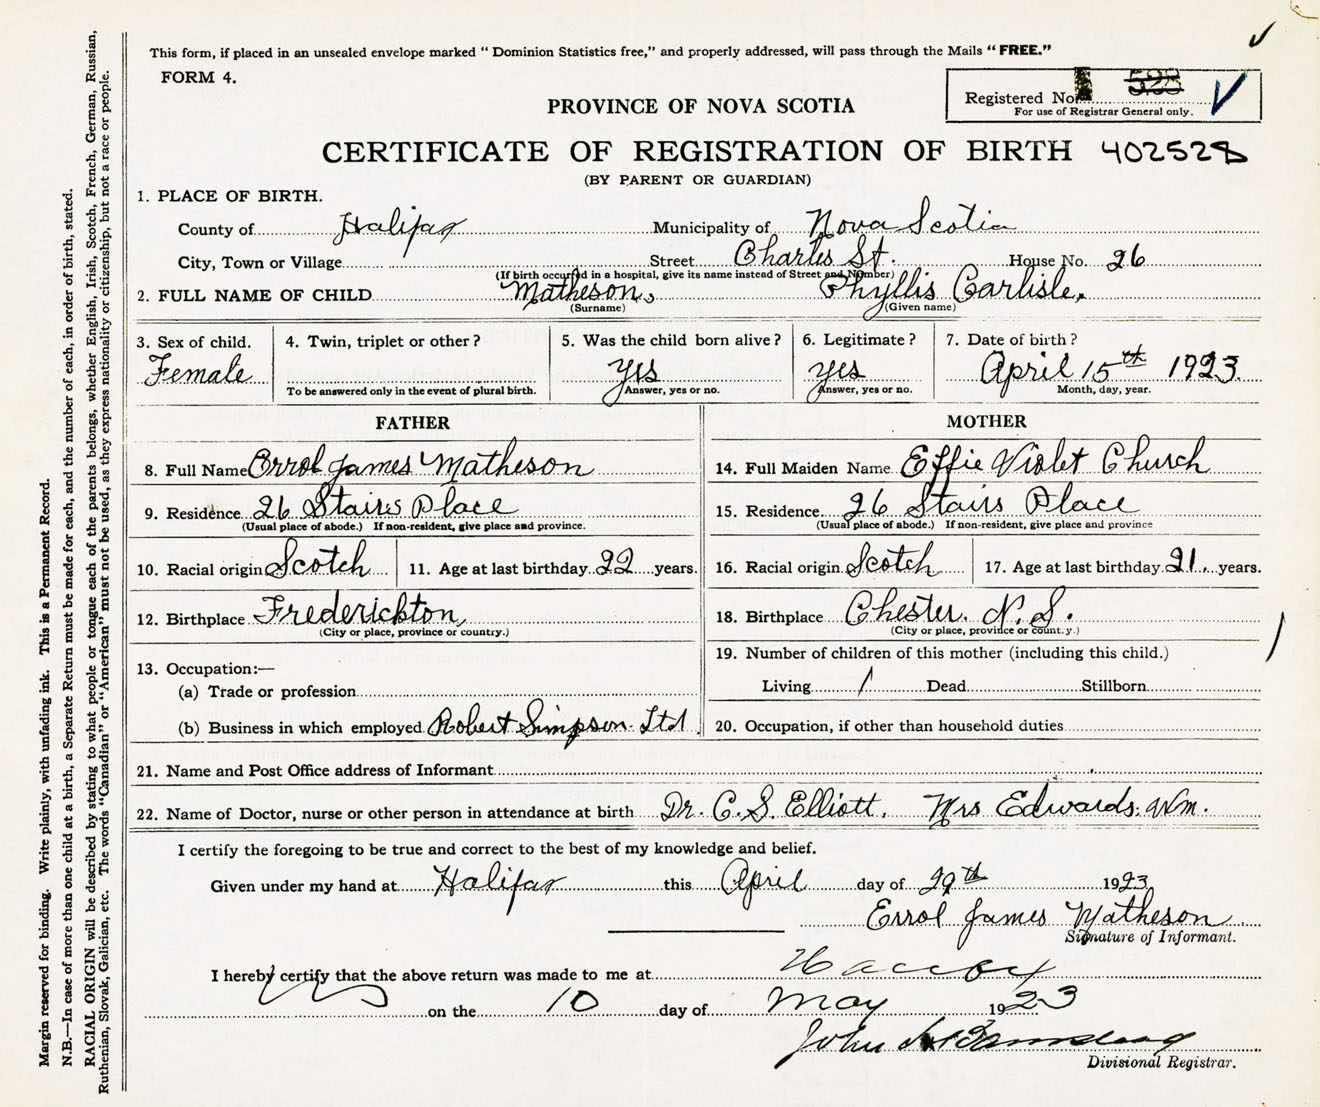 This form, if placed in an unsealed envelope marked “ Dominion Statistics free,” and properly addressed, will pass through the Mails “ FREE.”
FORM 4.
Registered No. 525
For use of Registrar General only.
PROVINCE OF NOVA SCOTIA
CERTIFICATE OF REGISTRATION OF BIRTH 402528
(BY PARENT OR GUARDIAN)
1. PLACE OF BIRTH.
County of Halifax Municipality of Nova Scotia
City, Town or Village Street Charles St. House No. 26
(If birth occurred in a hospital, give its name instead of Street and Number)
2. FULL NAME OF CHILD Matheson, Phyllis Carlisle,
(Surname) (Given name)
3. Sex of child. 4. Twin, triplet or other? 5. Was the child born alive? 6. Legitimate? 7. Date of birth?
Female yes yes April 15th 1923.
To be answered only in the event of plural birth. Answer, yes or no. Answer, yes or no. Month, day, year.
FATHER
8. Full Name Errol James Matheson
9. Residence 26 Stairs Place
(Usual place of abode.) If non-resident, give place and province.
10. Racial origin Scotch 11. Age at last birthday 22 years.
12. Birthplace Frederickton,
(City or place, province or country.)
13. Occupation:—
(a) Trade or profession
(b) Business in which employed Robert Simpson Ltd
MOTHER
14. Full Maiden Name Effie Violet Church
15. Residence 26 Stairs Place
(Usual place of abode.) If non-resident, give place and province
16. Racial origin Scotch 17. Age at last birthday 21 years.
18. Birthplace Chester. N.S.
(City or place, province or count.y.)
19. Number of children of this mother (including this child.)
Living 1 Dead Stillborn
20. Occupation, if other than household duties
21. Name and Post Office address of Informant
22. Name of Doctor, nurse or other person in attendance at birth Dr. C.S. Elliott, Mrs Edwards. Wm.
I certify the foregoing to be true and correct to the best of my knowledge and belief.
Given under my hand at Halifax this April day of 29th 1923
Errol James Matheson
Signature of Informant.
I hereby certify that the above return was made to me at Halifax
on the 10 day of May 1923
John
Divisional Registrar.
Margin reserved for binding. Write plainly, with unfading ink. This is a Permanent Record.
N.B.—In case of more than one child at a birth, a Separate Return must be made for each, and the number of each, in order of birth, stated.
RACIAL ORIGIN will be described by stating to what people or tongue each of the parents belongs, whether English, Irish, Scotch, French, German, Russian,
Ruthenian, Slovak, Galician, etc. The words “Canadian” or “American” must not be used, as they express nationality or citizenship, but not a race or people.